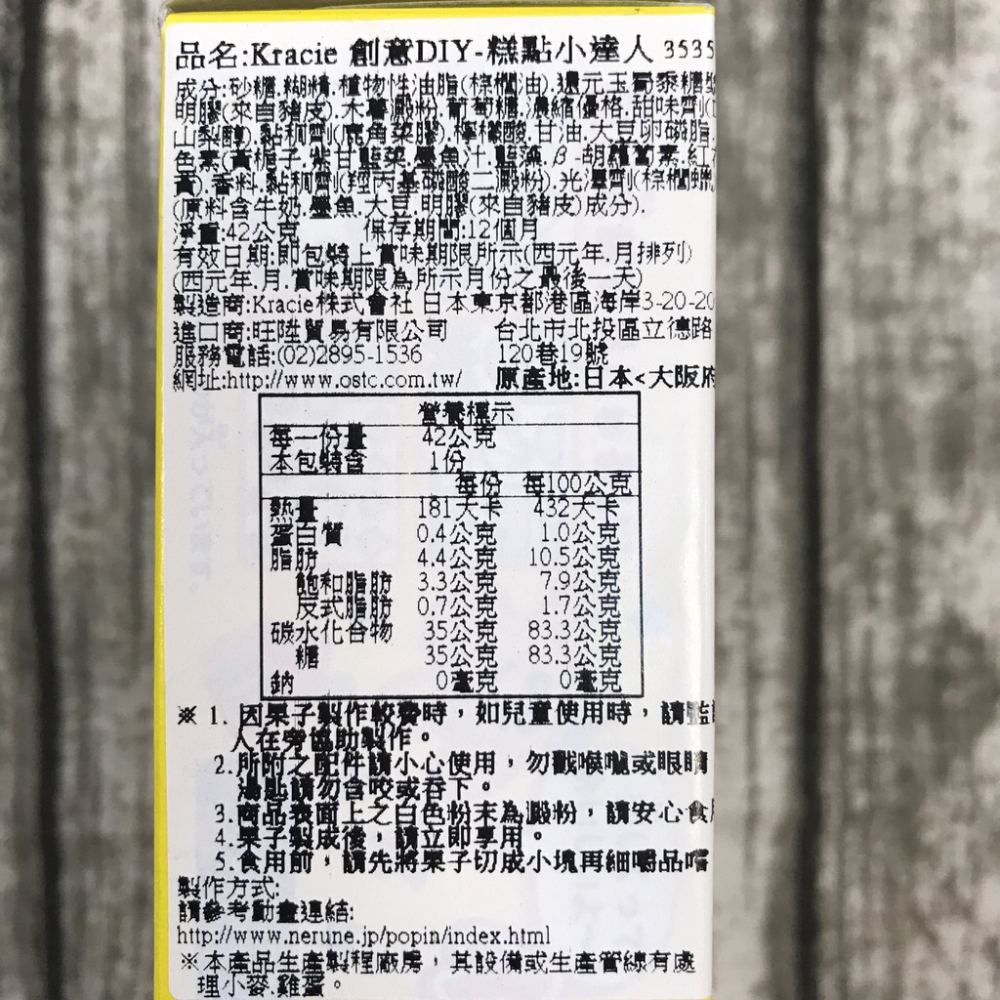 品名:Kracie 創意DIY-糕點小達人 3535
成分:砂糖.糊精.植物性油脂(棕櫚油).還元玉蜀黍糖
明膠(來自豬皮).木薯澱粉.葡萄糖.濃縮優格.甜味劑(
山梨醇).黏稠劑(鹿角菜膠).檸檬酸.甘油.大豆卵磷脂.
色素(黃梔子.紫甘藍菜.墨魚汁.藍藻.β-胡蘿蔔素.紅
黃).香料.黏稠劑(羥丙基磷酸二澱粉).光澤劑(棕櫚蠟
(原料含牛奶.墨魚.大豆.明膠(來自豬皮)成分).
淨重:42公克 保存期間:12個月
有效日期:即包裝上賞味期限所示(西元年.月排列)
(西元年.月.賞味期限為所示月份之最後一天)
製造商:Kracie株式會社 日本東京都港區海岸3-20-20
進口商:旺陞貿易有限公司 台北市北投區立德路
服務電話:(02)2895-1536 120巷19號
網址:http://www.ostc.com.tw/ 原產地:日本<大阪府
營養標示
每一份量 42公克
本包裝含 1份
每份 每100公克
熱量 181大卡 432大卡
蛋白質 0.4公克 1.0公克
脂肪 4.4公克 10.5公克
飽和脂肪 3.3公克 7.9公克
反式脂肪 0.7公克 1.7公克
碳水化合物 35公克 83.3公克
糖 35公克 83.3公克
鈉 0毫克 0毫克
※ 1. 因果子製作較費時，如兒童使用時，請監
人在旁協助製作。
2.所附之配件請小心使用，勿戳喉嚨或眼睛
湯匙請勿含咬或吞下。
3.商品表面上之白色粉末為澱粉，請安心食
4.果子製成後，請立即享用。
5.食用前，請先將果子切成小塊再細嚼品嚐
製作方式:
請參考動畫連結:
http://www.nerune.jp/popin/index.html
※本產品生產製程廠房，其設備或生產管線有處
理小麥.雞蛋。